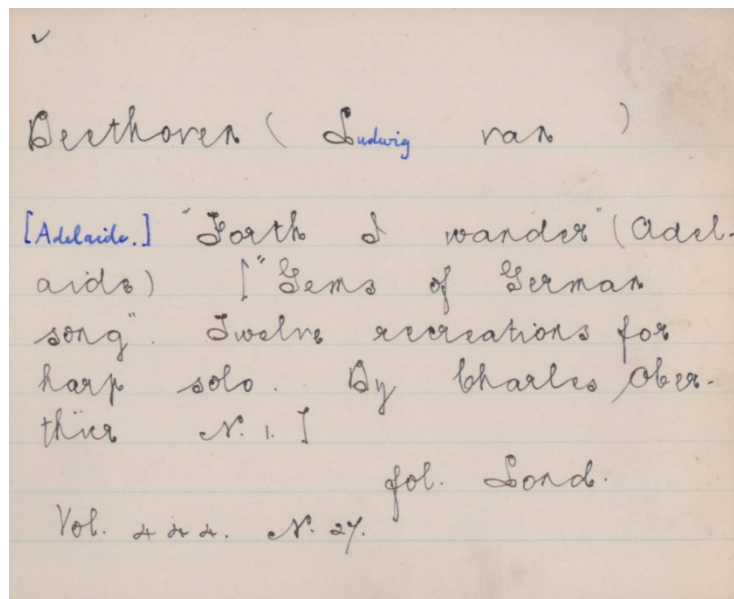 Beethoven (Ludwig van)
[Adelaide.] "Forth I wander" (Adel-
aide) ["Gems of German
song". Twelve recreations for
harp solo. By Charles Ober-
thür N. 1.]
fol. Lond.
Vol. 444. N. 27.